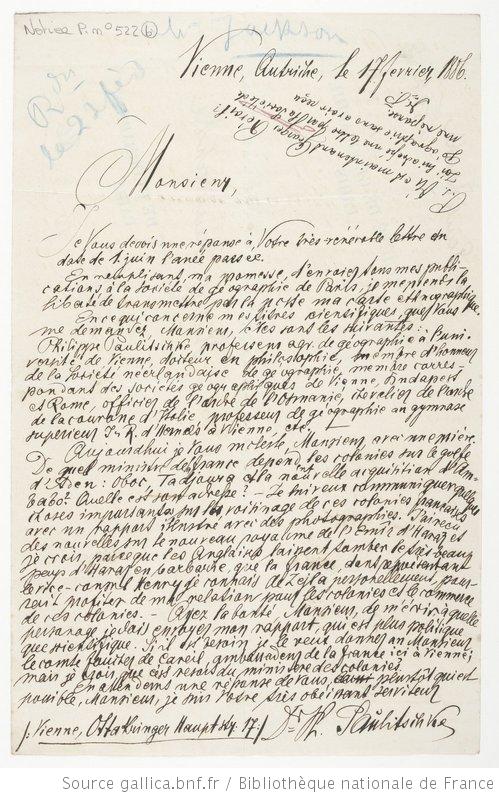 Notice P. n° 522 (b)
Mr Jackson
Rdu
le 22 fév
Vienne, Autriche, le 17 fevrier, 1886.
Monsieur,
Je Vous devois une réponse à Votre très-vénérable lettre du
date de 1 juin l'anée passée.
En remplissant, ma promesse, d'envoier tous mes publi-
cations à la société de géographie de Paris, je me prends la
liberté de transmettre par la poste ma carte ethnographique.
En ce qui concerne mes titres scientifiques, que Vous
me demandez, Monsieur, ils sont les suivantes:
Philippe Paulitschke, professeur agr. de géographie à l'uni-
versité de Vienne, docteur en philosophie, membre d'honneur
de la Société néerlandaise de géographie, membre corres-
pondant des sociétés géographiques de Vienne, Budapest
et Rome, officier de l'ordre de l'Osmanie, chevalier de l'ordre
de la couronne d'Italie, professeur de géographie au gymnase
superieur I. R. d'Hernals à Vienne, etc.
Aujourdhui je Vous moleste, Monsieur, avec une prière.
De quel ministre de france depend les colonies sur le golfe
d'Aden: Oboc, Tadjoura et la nouvelle acquisition d'Am-
babo? Quelle est son adresse? — Je lui veux communiquer quelques
choses importants sur le voisinage de ces colonies françaises
avec un rapport illustré avec des photographies. J'ai reçu
des nouvelles sur le nouveau royaume de l'Emir d'Harar et
je crois, parceque les Anglais laissent tomber le très beau
pays d'Harar en barbarie, que la france, dont représentant
le vice-consul Henry je connais de Zejla personellement, pour-
roit profiter de ma relation pour les colonies et le commerce
de ces colonies. — Ayez la bonté, Monsieur, de m'écrire à quelle
personage je dois envoyer mon rapport, qui est plus politique
que scientifique. S'il est besoin je le veux donner au Monsieur
le comte foucher de Careil, ambassadeur de la france ici à Vienne;
mais je crois que c'est ressort du ministre des colonies.
En attendant une réponse de Vous, plustôt qui est
possible, Monsieur, je suis Votre très obéissant serviteur
/: Vienne, Ottakringer Hauptstr. 17 :/ Dr Ph. Paulitschke
Source gallica.bnf.fr / Bibliothèque nationale de France